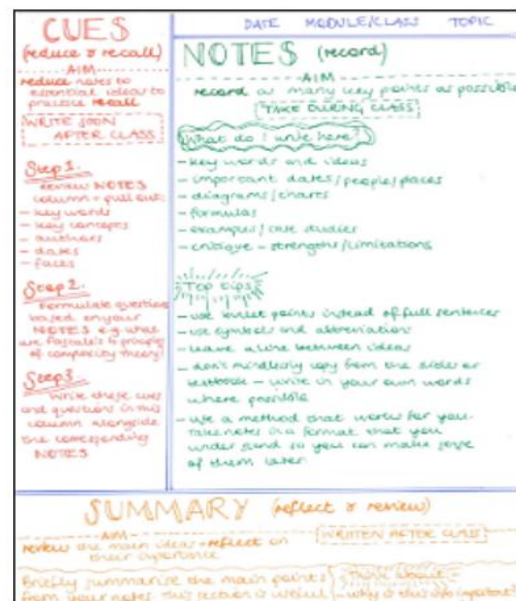 DATE MODULE/CLASS TOPIC
CUES
(reduce & recall)
AIM
reduce notes to
essential ideas to
practice recall
WRITE SOON
AFTER CLASS
Step 1.
Review NOTES
column + pull out:
- key words
- key concepts
- authors
- dates
- faces
Step 2.
Formulate questions
based on your
NOTES e.g. what
are Pascale's 4 principles
of complexity theory?
Step 3.
Write these cues
and questions in this
column alongside
the corresponding
NOTES
NOTES (record)
AIM
record as many key points as possible
TAKE DURING CLASS
What do I write here?
- key words and ideas
- important dates/people/places
- diagrams/charts
- formulas
- examples/case studies
- critique - strengths/limitations
Top tips
- use bullet points instead of full sentences
- use symbols and abbreviations
- leave a line between ideas
- don't mindlessly copy from the slides or
textbook - write in your own words
where possible
- use a method that works for you.
Take notes in a format that you
understand so you can make sense
of them later.
SUMMARY (reflect & review)
AIM
review the main ideas + reflect on
their importance
WRITTEN AFTER CLASS
Briefly summarise the main points
from your notes. this section is useful
Think about -
- why is this info important?